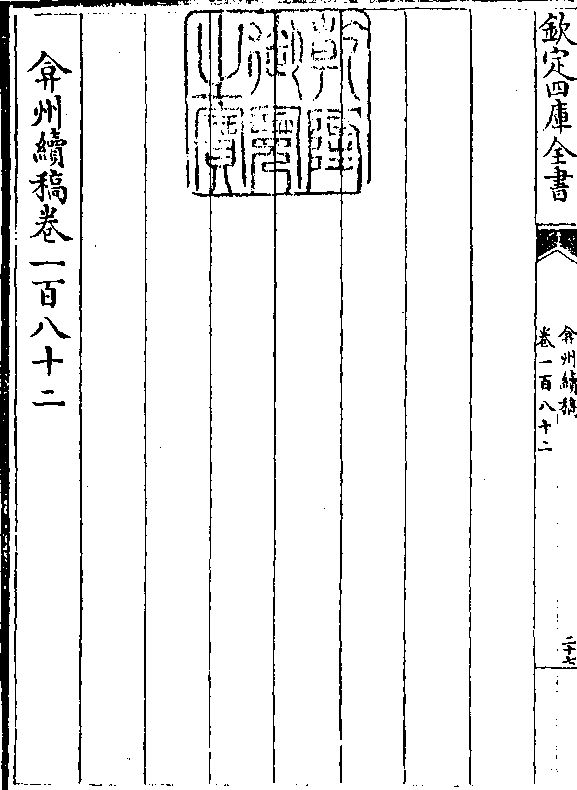 欽定四庫全書
弇州續稿
卷一百八十二
二十七
乾隆御覽之寶
弇州續稿卷一百八十二